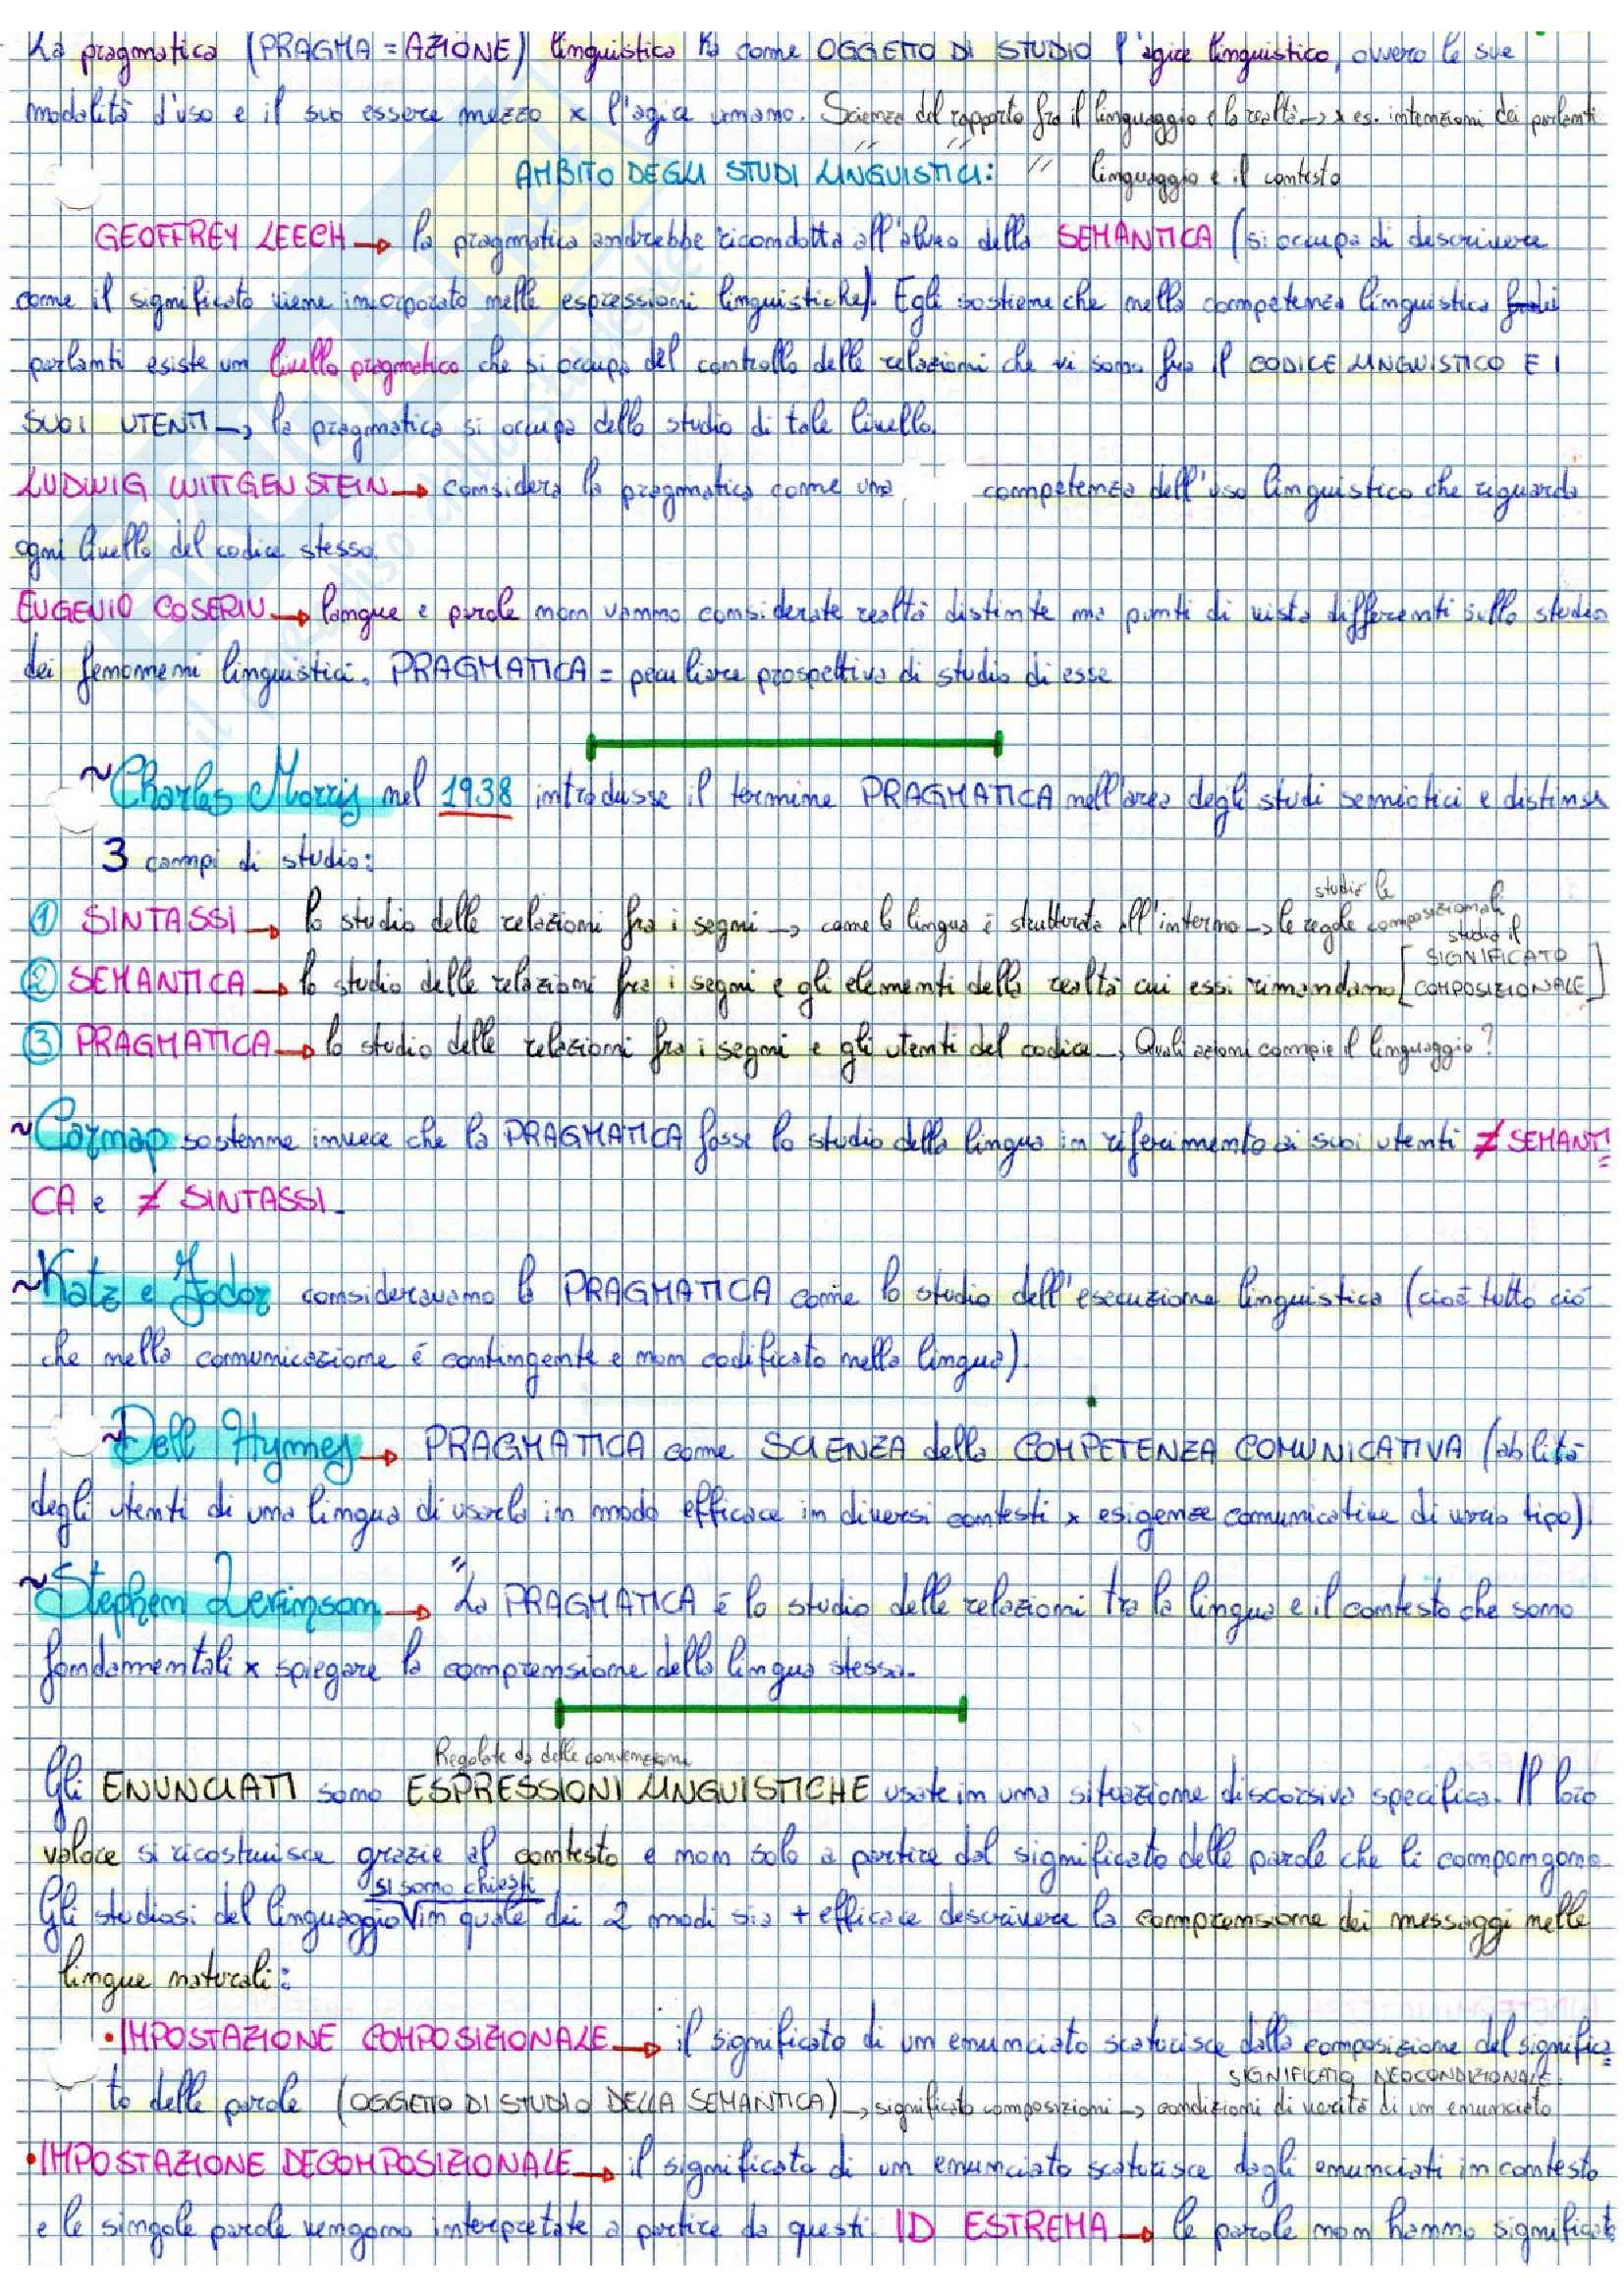 La pragmatica (PRAGMA = AZIONE) linguistica ha come OGGETTO DI STUDIO l'agire linguistico, ovvero le sue
modalità d'uso e il suo essere mezzo x l'agire umano. Scienza del rapporto fra il linguaggio e la realtà → x es. intenzioni dei parlanti
AMBITO DEGLI STUDI LINGUISTICI: " " " linguaggio e il contesto
GEOFFREY LEECH → la pragmatica andrebbe ricondotta all'alveo della SEMANTICA (si occupa di descrivere
come il significato viene incorporato nelle espressioni linguistiche). Egli sostiene che nella competenza linguistica dei
parlanti esiste un livello pragmatico che si occupa del controllo delle relazioni che vi sono fra il CODICE LINGUISTICO E I
SUOI UTENTI → la pragmatica si occupa dello studio di tale livello.
LUDWIG WITTGENSTEIN → considera la pragmatica come una competenza dell'uso linguistico che riguarda
ogni livello del codice stesso.
EUGENIO COSERIU → langue e parole non vanno considerate realtà distinte ma punti di vista differenti sullo studio
dei fenomeni linguistici. PRAGMATICA = peculiare prospettiva di studio di esse
~Charles Morris nel 1938 introdusse il termine PRAGMATICA nell'area degli studi semiotici e distinse
3 campi di studio:
studia le
① SINTASSI → lo studio delle relazioni fra i segni → come la lingua è strutturata all'interno → le regole composizionali
studia il
SIGNIFICATO
② SEMANTICA → lo studio delle relazioni fra i segni e gli elementi della realtà cui essi rimandano [COMPOSIZIONALE]
③ PRAGMATICA → lo studio delle relazioni fra i segni e gli utenti del codice → Quali azioni compie il linguaggio?
~Carnap sostenne invece che la PRAGMATICA fosse lo studio della lingua in riferimento ai suoi utenti ≠ SEMANTI=
CA e ≠ SINTASSI.
~Katz e Fodor consideravano la PRAGMATICA come lo studio dell'esecuzione linguistica (cioè tutto ciò
che nella comunicazione è contingente e non codificato nella lingua).
~Dell Hymes → PRAGMATICA come SCIENZA della COMPETENZA COMUNICATIVA (abilità
degli utenti di una lingua di usarla in modo efficace in diversi contesti x esigenze comunicative di vario tipo)
~Stephen Levinson → "La PRAGMATICA è lo studio delle relazioni tra la lingua e il contesto che sono
fondamentali x spiegare la comprensione della lingua stessa.
Regolate da delle convenzioni
Gli ENUNCIATI sono ESPRESSIONI LINGUISTICHE usate in una situazione discorsiva specifica. Il loro
valore si ricostruisce grazie al contesto e non solo a partire dal significato delle parole che li compongono.
si sono chiesti
Gli studiosi del linguaggio √ in quale dei 2 modi sia + efficace descrivere la comprensione dei messaggi nelle
lingue naturali:
• IMPOSTAZIONE COMPOSIZIONALE → il significato di un enunciato scaturisce dalla composizione del significa=
SIGNIFICATO NEOCONDIZIONALE
to delle parole (OGGETTO DI STUDIO DELLA SEMANTICA) → significato composizioni → condizioni di verità di un enunciato
• IMPOSTAZIONE DECOMPOSIZIONALE → il significato di un enunciato scaturisce dagli enunciati in contesto
e le singole parole vengono interpretate a partire da questi. ID ESTREMA → le parole non hanno significato